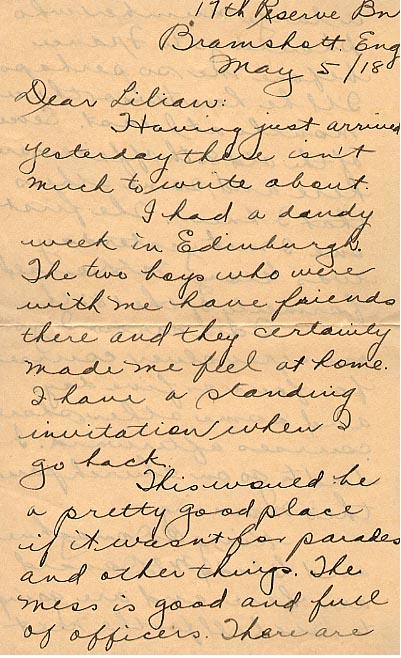 17th Reserve Bn
Bramshott. Eng
May 5/18
Dear Lilian:
Having just arrived
yesterday there isn't
much to write about.
I had a dandy
week in Edinburgh.
The two boys who were
with me have friends
there and they certainly
made me feel at home.
I have a standing
invitation when I
go back.
This would be
a pretty good place
if it wasnt for parades
and other things. The
mess is good and full
of officers. There are